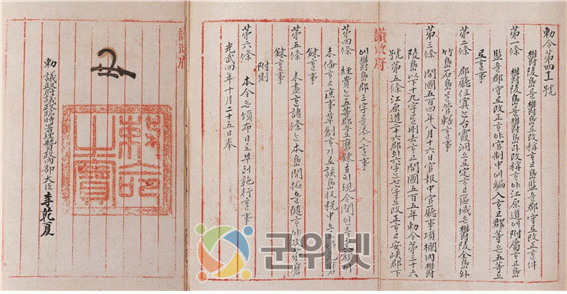 勅令第四十一號
鬱陵島를鬱島로改稱하고島監을郡守로改正한件
第一條 鬱陵島를鬱島라改稱하야江原道에附屬하고島
監을郡守로改正하야官制中에編入하고郡等은五等으
로할事
第二條 郡廳位置는台霞洞으로定하고區域은鬱陵全島와
竹島石島를管轄할事
第三條 開國五百四年八月十六日官報中官廳事項欄內鬱
陵島以下十九字를刪去하고開國五百五年勅令第三十六
號第五條江原道二十六郡의六字는七字로改正하고安峽郡下
에鬱島郡三字를添入할事
議政府
第四條 經費는五等郡으로磨鍊호되現今間인즉吏額이
未備하고庶事草創하기로該島收稅中으로姑先磨
鍊할事
第五條 未盡한諸條는本島開拓을隨하야次第磨
鍊할事
附則
第六條 本令은頒布日로부터施行할事
光武四年十月二十五日奉
議政府
勅命之寶
勅 議政府議政臨時署理贊政內部大臣李乾夏
군위넷